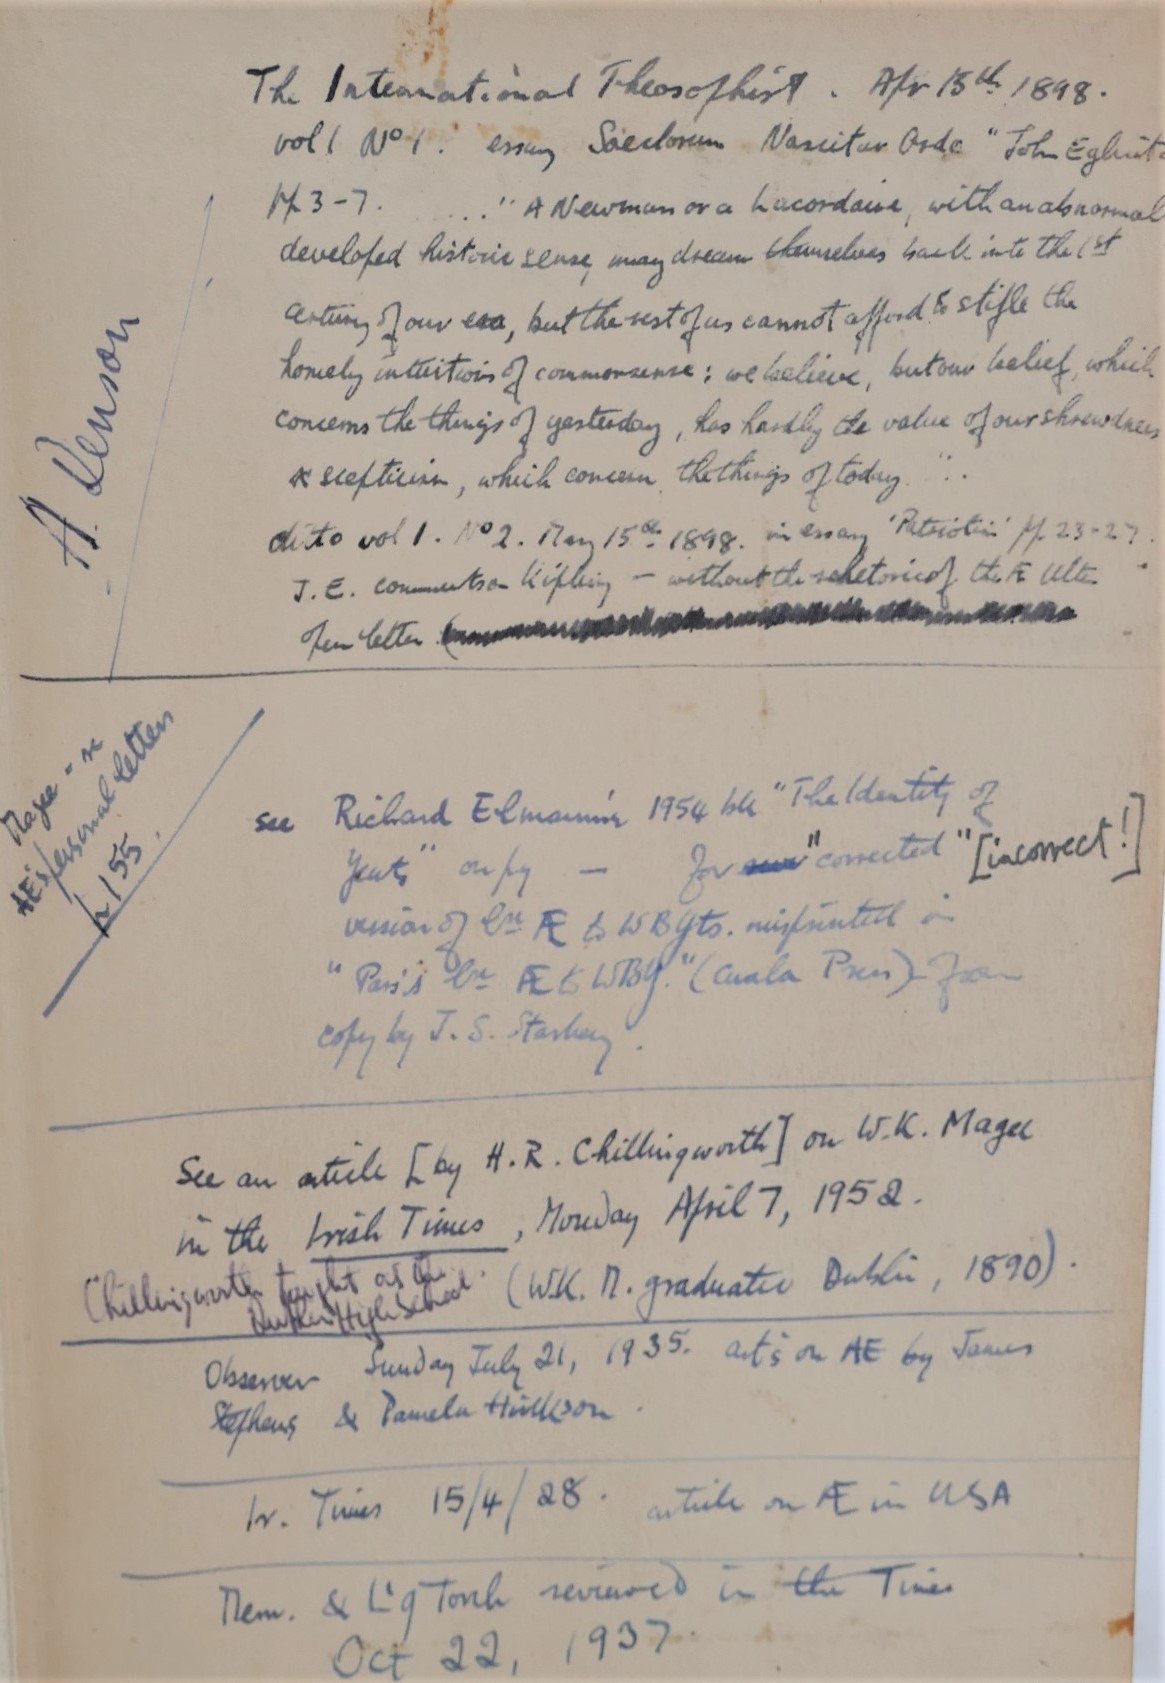 The International Theosophist. Apr 15th 1898.
vol 1 No 1. essay Saeclorum Nascitur Ordo "John Eglint
pp. 3-7. ....." A Newman or a Lacordaire, with an abnormal
developed historic sense, may dream themselves back into the 1st
century of our era, but the rest of us cannot afford to stifle the
homely intuitions of commonsense: we believe, but our belief, which
concerns the things of yesterday, has hardly the value of our shrewdness
& scepticism, which concern the things of today."..
ditto vol 1. No 2. May 15th 1898. in essay 'Patriotism' pp. 23-27.
J.E. comments on Kipling – without the rhetoric of the Æ Ulster
open letter
A. Denson
Magee - &
AE's personal letters
p 155.
see Richard Elmann's 1954 bk "The Identity of
Yeats" on pg — for "corrected" [incorrect!]
version of lr Æ to WBYts. misprinted in
"Pass's lrs Æ to WBY." (Cuala Press) from
copy by J. S. Starkey.
See an article [by H.R. Chillingworth] on W.K. Magee
in the Irish Times, Monday April 7, 1952.
Chillingworth taught at the
Dublin High School.
(W.K.M. graduated Dublin, 1890).
Observer Sunday July 21, 1935. arts on AE by James
Stephens & Pamela Hinkson.
Ir. Times 15/4/28. article on Æ in USA
Mem. & L'g Torch reviewed in the Times
Oct 22, 1937.